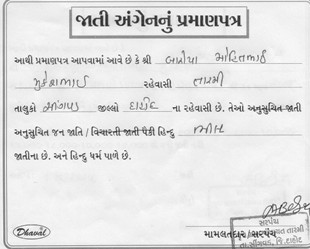 જાતી અંગેનનું પ્રમાણપત્ર
આથી પ્રમાણપત્ર આપવામાં આવે છે કે શ્રી બારીયા મોહિતભાઈ
મુકેશભાઈ રહેવાસી તારમી
તાલુકો સીંગવડ જીલ્લો દાહોદ ના રહેવાસી છે. તેઓ અનુસુચિત-જાતી
અનુસુચિત જન જાતિ / વિચારતી જાતી પૈકી હિન્દુ ભીલ
જાતીના છે. અને હિન્દુ ધર્મ પાળે છે.
Dhaval
સરપંચ
મામલતદાર/સરપંચ
તા.સીંગવડ, જિ.દાહોદ